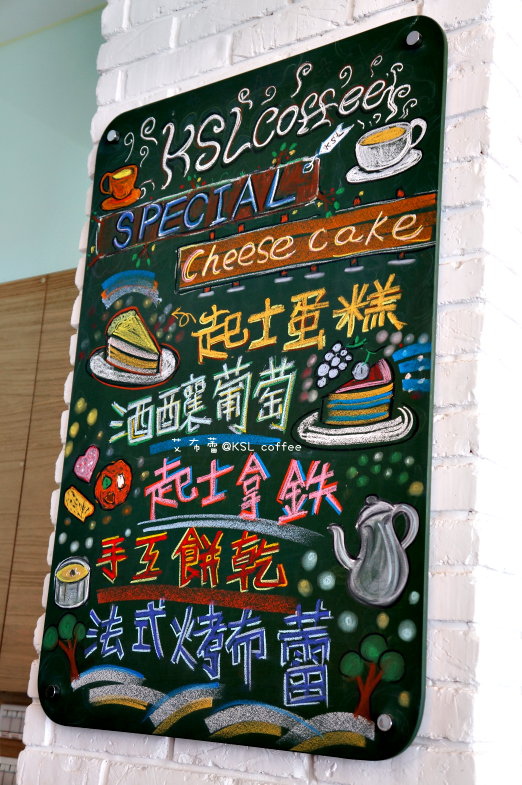 KSL coffee
KSL
SPECIAL
Cheese cake
起士蛋糕
酒釀葡萄
艾布蕾@KSL coffee
起士拿鉄
手工餅乾
法式烤布蕾